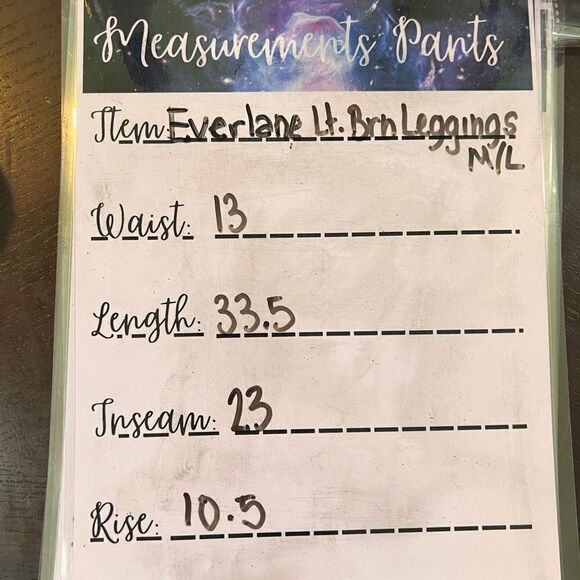 Measurements Pants
Item: Everlane Lt. Brn Leggings
M/L
Waist: 13
Length: 33.5
Inseam: 23
Rise: 10.5